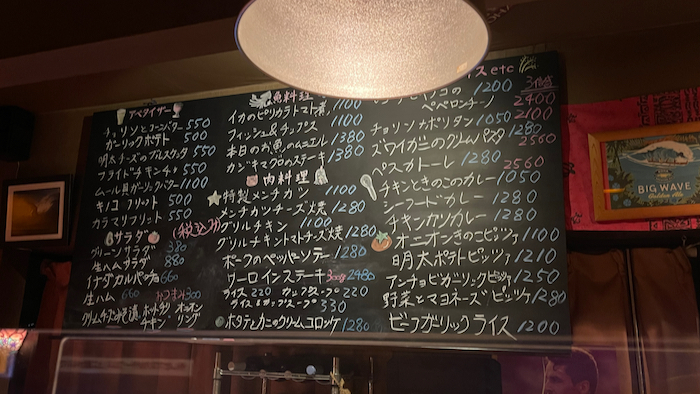 アペタイザー
チョリソとコーンバター 550
ガーリックポテト 500
明太チーズのブルスケッタ 550
フライドチキン 550
ムール貝ガーリックバター 1100
キノコフリット 500
カラマリフリット 550
サラダ (税込み)
グリーンサラダ 380
生ハムサラダ 880
イナダカルパッチョ 660
生ハム 660
クリームチーズ ホットチリチキン オニオンリング
魚料理 1100
イカのピリカラトマト煮
フィッシュ&チップス 1100
本日のお魚のムニエル 1380
カジキマグロのステーキ 1380
肉料理
特製メンチカツ 1100
メンチカツチーズ焼 1280
グリルチキン 1100
グリルチキントマトチーズ焼 1280
ポークのペッパーソテー 1280
サーロインステーキ 300g 2480
ライス 220 カップスープ 220
ライス&カップスープ 330
ホタテとカニのクリームコロッケ 1280
ライス etc
1200 3倍盛
ペペロンチーノ 2400
チョリソナポリタン 1050 2100
ズワイガニのクリームパスタ 1280 2560
ペスカトーレ 1280 2560
チキンときのこのカレー 1050
シーフードカレー 1280
チキンカツカレー 1280
オニオンきのこピッツァ 1100
明太ポテトピッツァ 1210
アンチョビガーリックピッツァ 1250
野菜とマヨネーズピッツァ 1280
ビーフガーリックライス 1200
BIG WAVE
Golden Ale